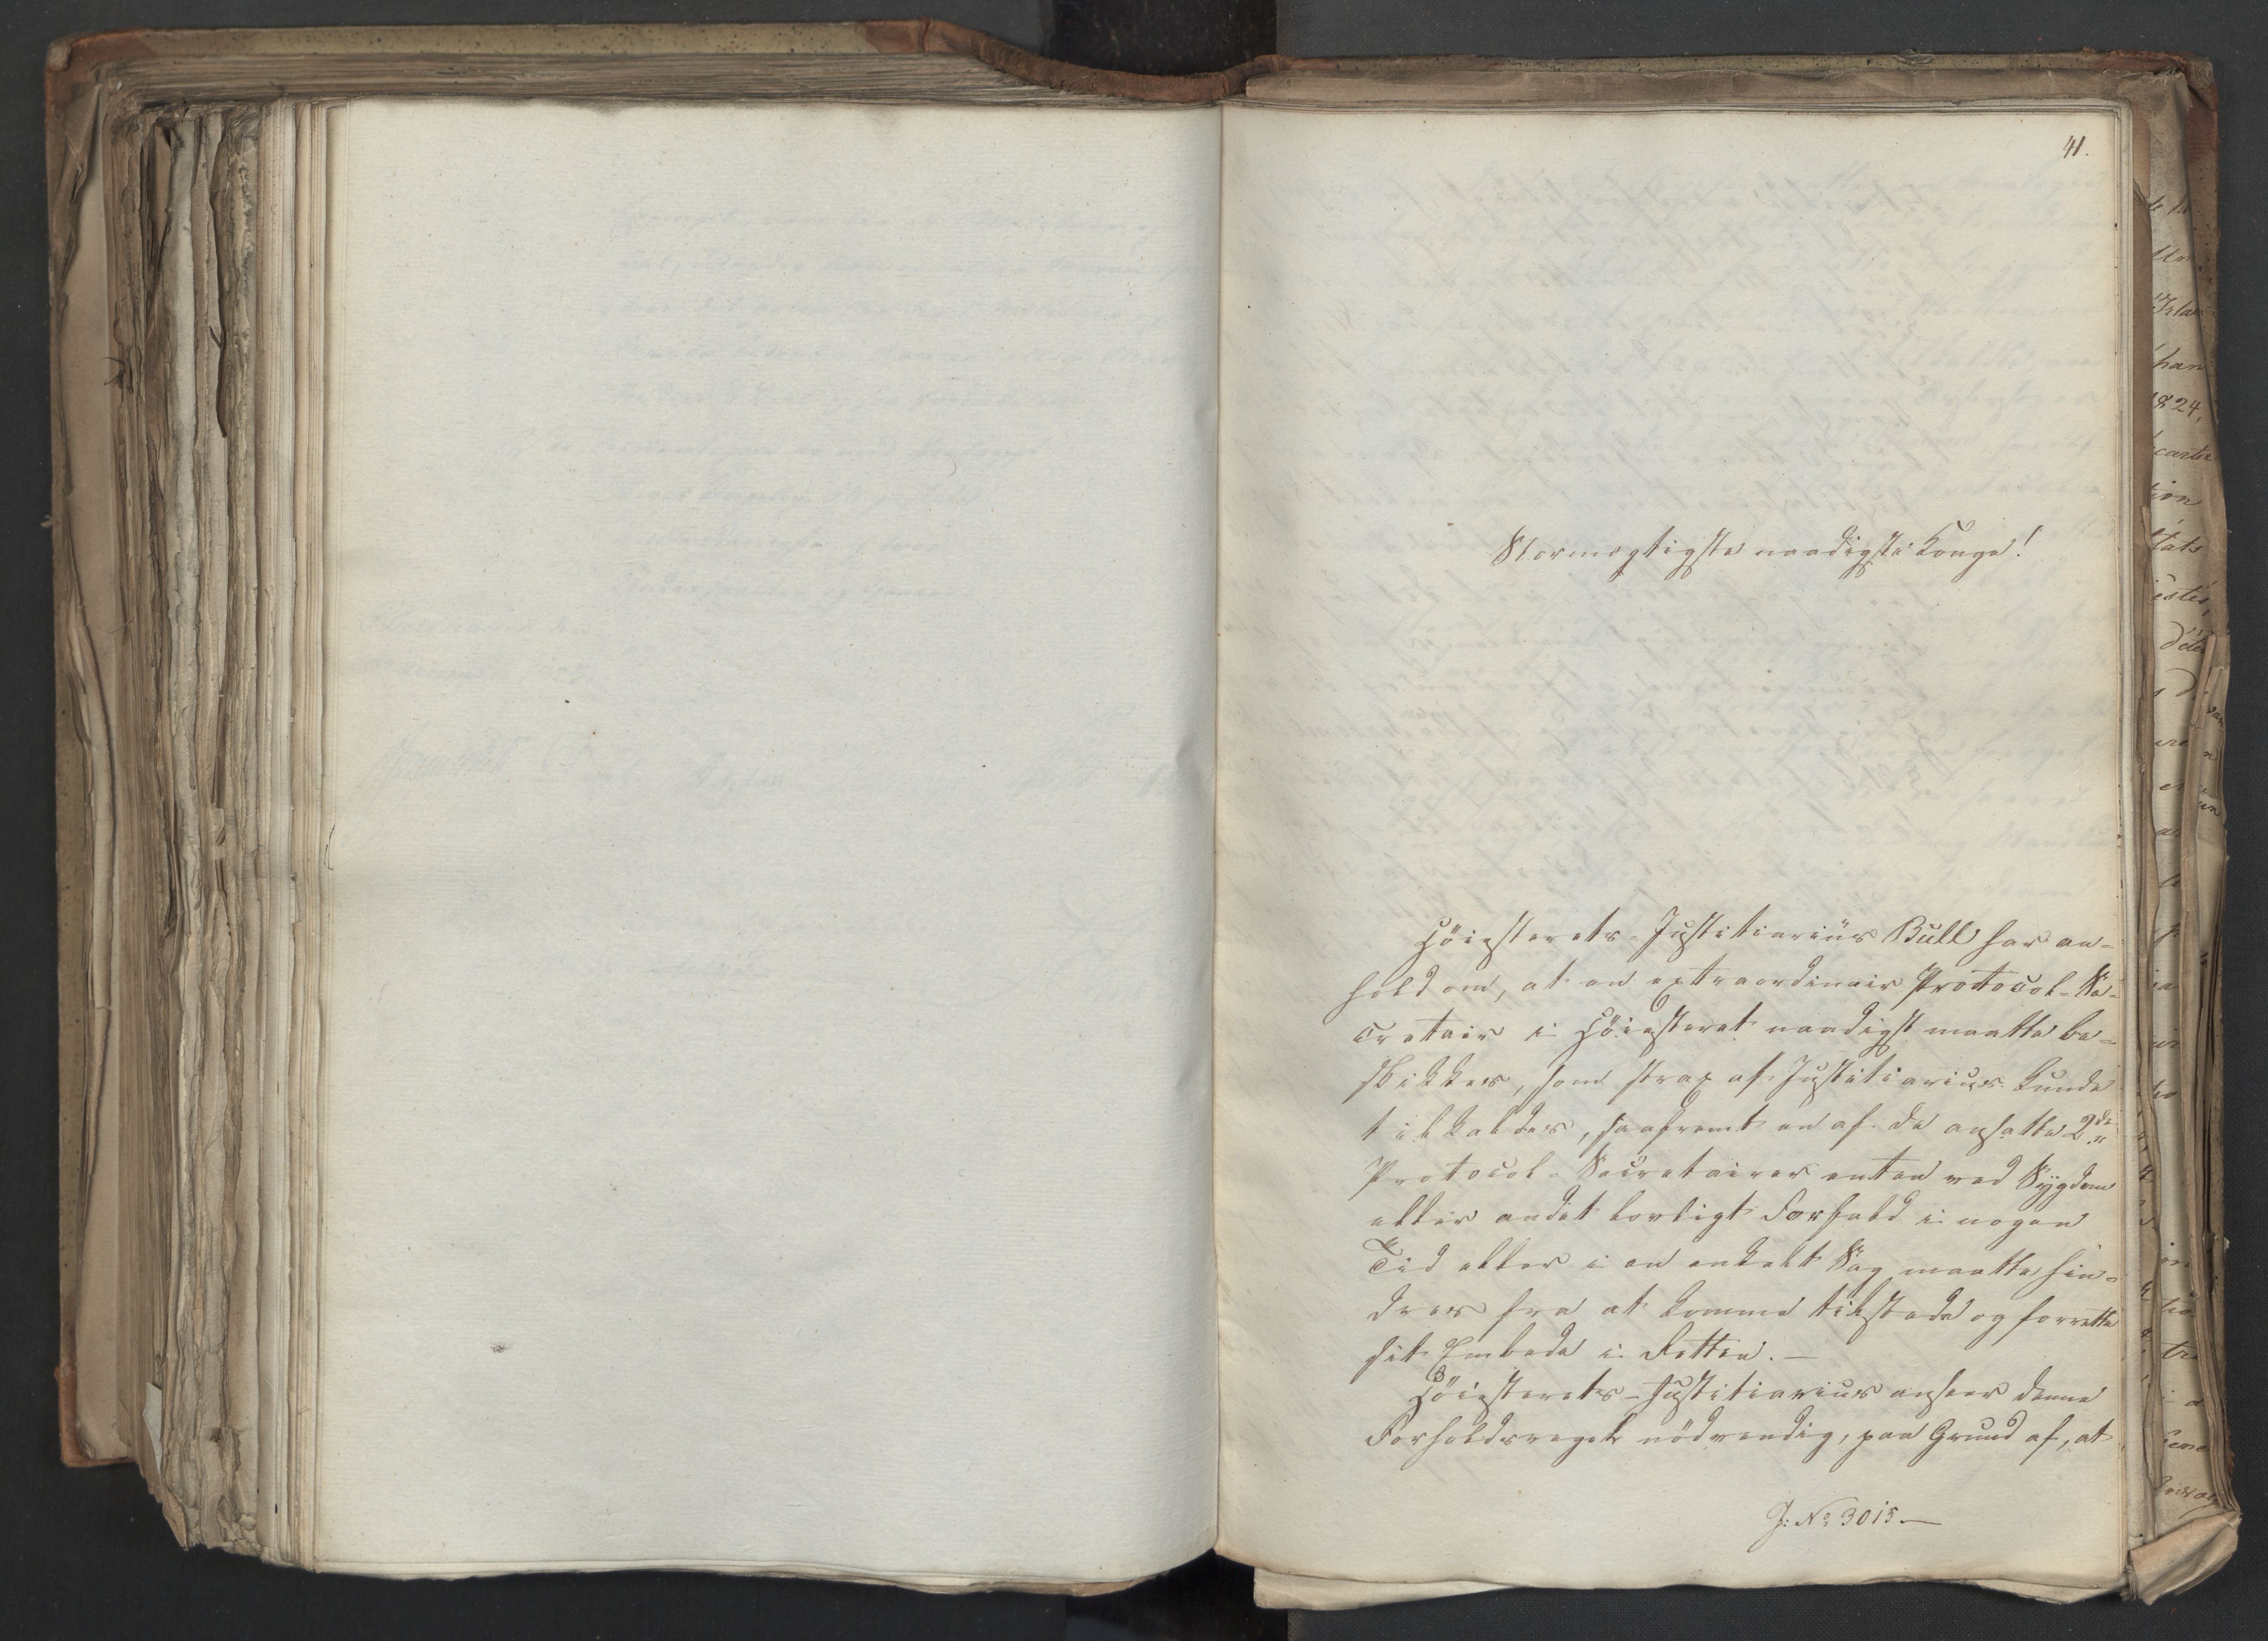 41.
Stormægtigste naadigste Konge!
Höiesterets-Justitiariüs Bull har an-
holdt om, at en extraordinair Protocol-Se-
cretair i Höiesteret naadigst maatte be-
skikkes, som strax af Justitiarius kunde
tilkaldes, saafremt en af de ansatte 2de
Protocol-Secretairer enten ved Sygdom
eller andet lovligt Forfald i nogen
Tid eller i en enkelt Sag maatte hin-
dres fra at komme tilstede og forrette
sit Embede i Retten. —
Höiesterets-Justitiarius anseer denne
Forholdsregel nödvendig, paa Grund af, at
J: No 3015 —